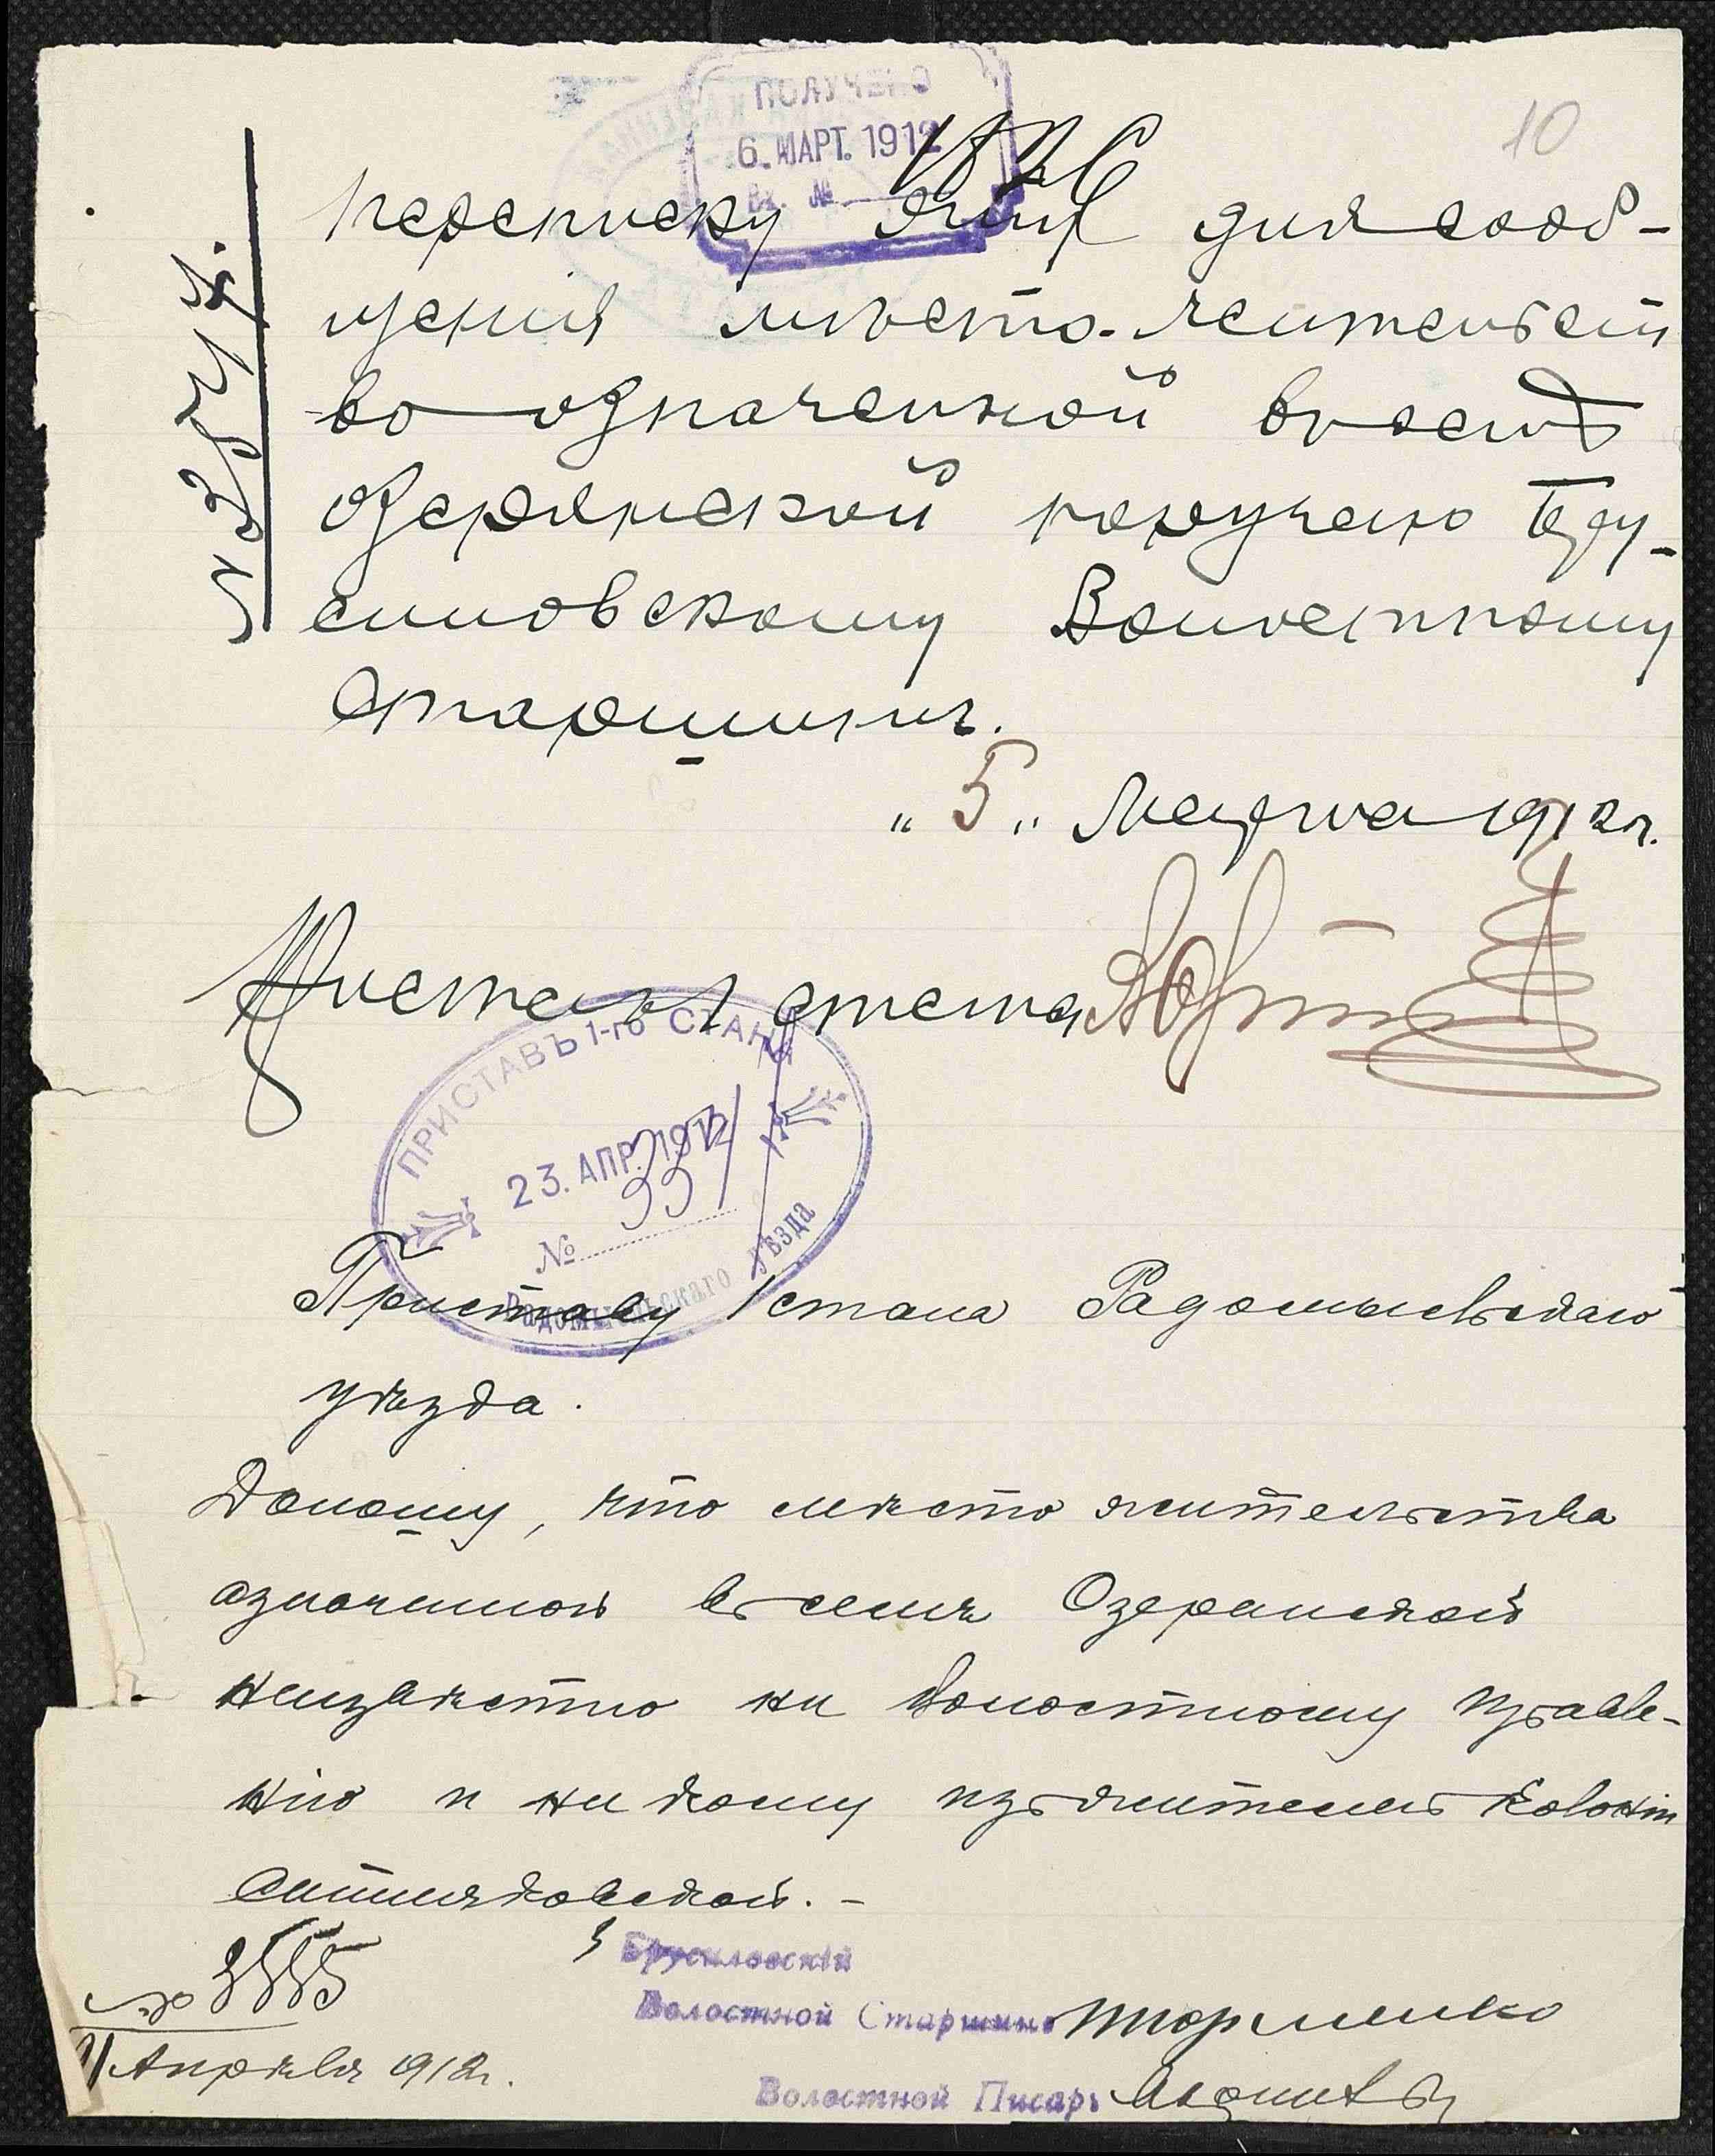 10
ПОЛУЧЕНО
6. МАРТ. 1912
Вх. №
переписку эту для сооб-
щенія мѣсто-жительст
во означенной въ семъ
Озерянской поручаю Бру-
силовскому Волостному
Старшинѣ.
"5" Марта 1912 г.
Приставъ 1 стана
ПРИСТАВЪ 1-го СТАНА
23. АПР. 1912
№ 3351
Радомысльскаго уѣзда
Приставу 1 стана Радомысльскаго
уѣзда.
Доношу, что мѣсто жительства
означенной въ семъ Озерянской
неизвѣстно ни волостному правле-
нію и ни кому изъ жителей
Ситняковской. –
№ 3555
21 Апрѣля 1912 г.
Брусиловскій
Волостной Старшина
Волостной Писарь